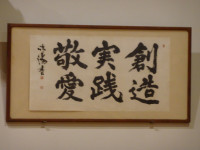 創造
実践
敬愛